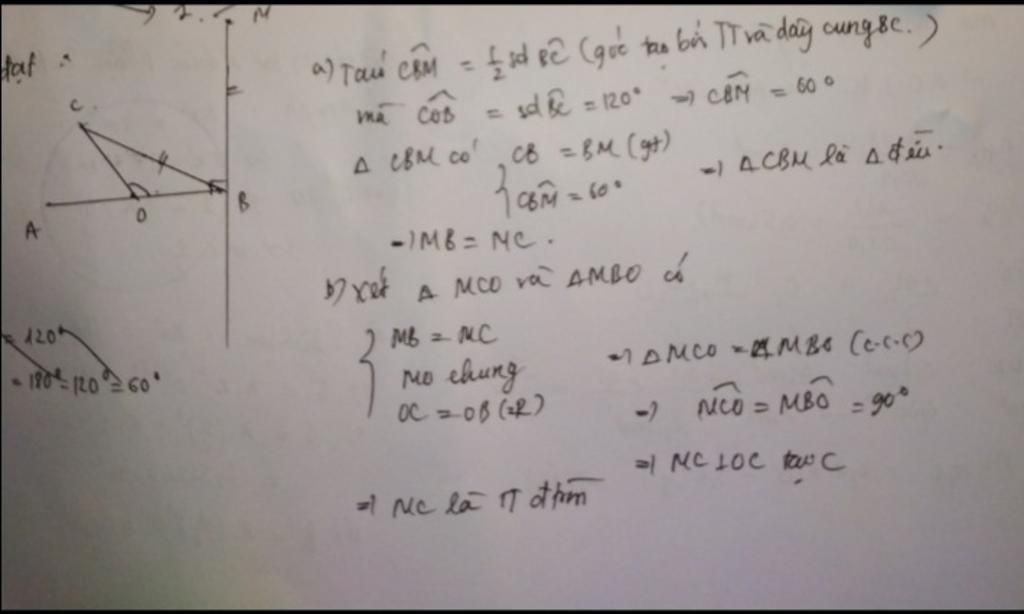 M
đạt
C
A
O
B
= 120°
= 180° = 120° = 60°
a) Ta có CBM̂ = 1/2 sđ BC (góc tạo bởi TT và dây cung BC.)
mà COB̂ = sđ BC = 120° => CBM̂ = 60°
Δ CBM có { CB = BM (gt)
CBM̂ = 60° => Δ CBM là Δ đều.
=> MB = MC.
b) Xét Δ MCO và ΔMBO có
{ MB = MC
MO chung => Δ MCO = Δ MBO (c.c.c)
OC = OB (=R) => MCÔ = MBÔ = 90°
=> MC ⊥ OC tại C
=> MC là TT đpcm